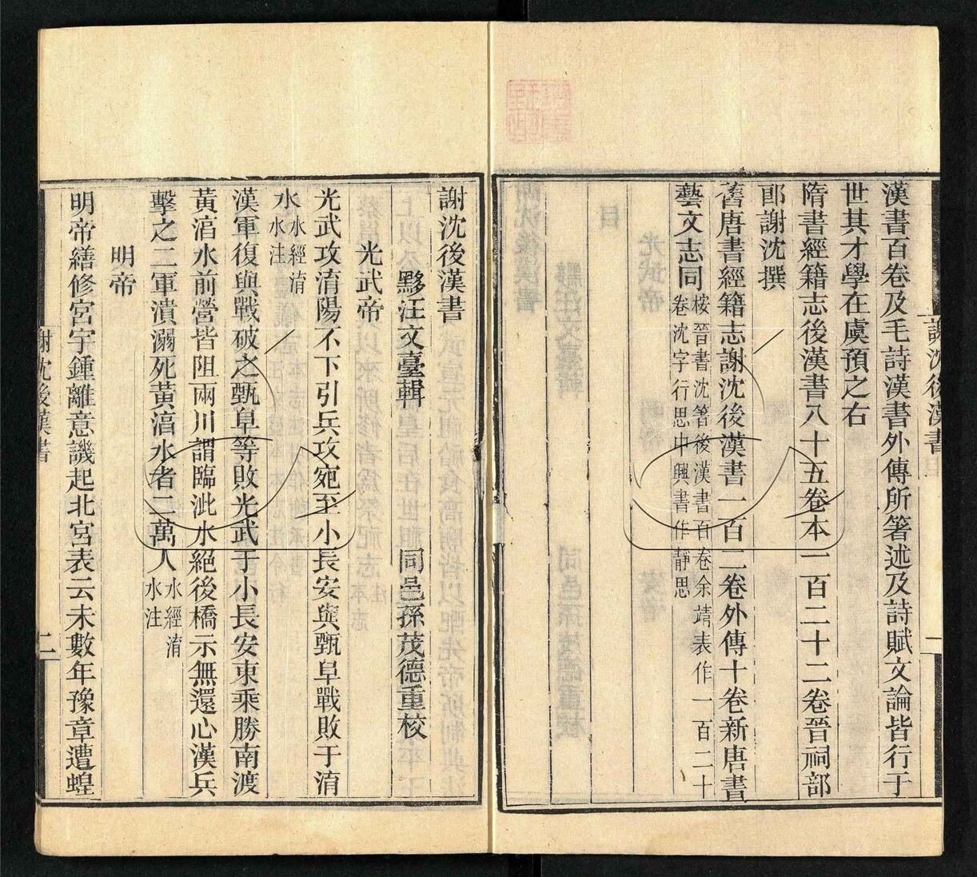 漢書百卷及毛詩漢書外傳所箸述及詩賦文論皆行于
世其才學在虞預之右
隋書經籍志後漢書八十五卷本一百二十二卷晉祠部
郎謝沈撰
舊唐書經籍志謝沈後漢書一百二卷外傳十卷新唐書
藝文志同
桉晉書沈箸後漢書百卷余靖表作一百二十
卷沈字行思中興書作靜思
謝沈後漢書
一
謝沈後漢書
黟汪文臺輯
同邑孫茂德重校
光武帝
光武攻淯陽不下引兵攻宛至小長安與甄阜戰敗于淯
水
水經淯
水注
漢軍復與戰破之甄阜等敗光武于小長安東乘勝南渡
黃淯水前營皆阻兩川謂臨泚水絕後橋示無還心漢兵
擊之二軍潰溺死黃淯水者二萬人
水經淯
水注
明帝
明帝繕修宮宇鍾離意譏起北宮表云未數年豫章遭蝗
謝沈後漢書
二